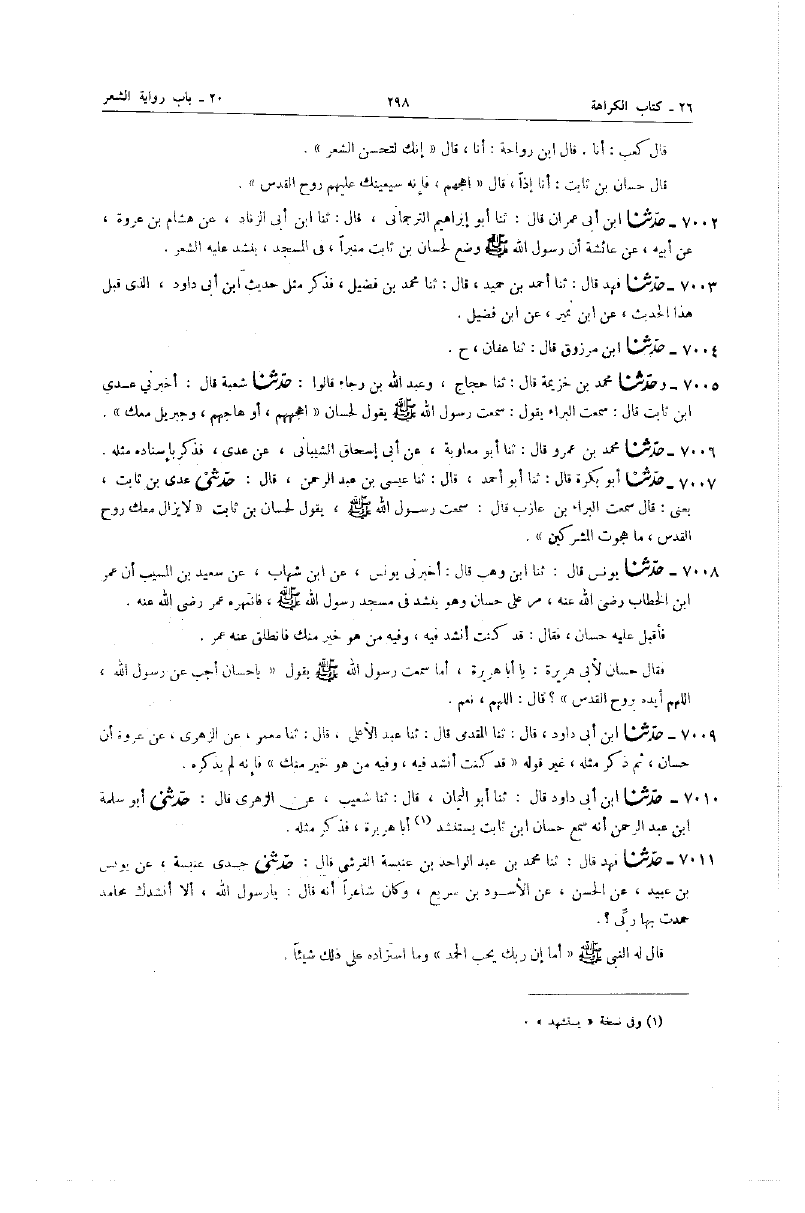 ٢٦ - كتاب الكراهة ٢٩٨ ٢٠ - باب رواية الشعر
قال كعب : أنا . قال ابن رواحة : أنا ، قال « إنك لتحسن الشعر » .
قال حسان بن ثابت : أنا إذاً ، قال « اهجهم ، فإنه سيعينك عليهم روح القدس » .
٧٠٠٢ - حدّثنا ابن أبى عمران قال : ثنا أبو إبراهيم الترجمانى ، قال : ثنا ابن أبى الزناد ، عن هشام بن عروة ،
عن أبيه ، عن عائشة أن رسول الله ﷺ وضع لحسان بن ثابت منبراً ، فى المسجد ، ينشد عليه الشعر .
٧٠٠٣ - حدّثنا فهد قال : ثنا أحمد بن حميد ، قال : ثنا محمد بن فضيل ، فذكر مثل حديث ابن أبى داود ، الذى قبل
هذا الحديث ، عن ابن نمير ، عن ابن فضيل .
٧٠٠٤ - حدّثنا ابن مرزوق قال : ثنا عفان ، ح .
٧٠٠٥ - وحدّثنا محمد بن خزيمة قال : ثنا حجاج ، وعبد الله بن رجاء قالوا : حدّثنا شعبة قال : أخبرنى عدى
ابن ثابت قال : سمعت البراء يقول : سمعت رسول الله ﷺ يقول لحسان « اهجهم ، أو هاجهم ، وجبريل معك » .
٧٠٠٦ - حدّثنا محمد بن عمرو قال : ثنا أبو معاوية ، عن أبى إسحاق الشيبانى ، عن عدى ، فذكر بإسناده مثله .
٧٠٠٧ - حدّثنا أبو بكرة قال : ثنا أبو أحمد ، قال : ثنا عيسى بن عبد الرحمن ، قال : حدّثنى عدى بن ثابت ،
يعنى : قال سمعت البراء بن عازب قال : سمعت رسول الله ﷺ ، يقول لحسان بن ثابت « لايزال معك روح
القدس ، ما هجوت المشركين » .
٧٠٠٨ - حدّثنا يونس قال : ثنا ابن وهب قال : أخبرنى يونس ، عن ابن شهاب ، عن سعيد بن المسيب أن عمر
ابن الخطاب رضى الله عنه ، مر على حسان وهو ينشد فى مسجد رسول الله ﷺ ، فانتهره عمر رضى الله عنه .
فأقبل عليه حسان ، فقال : قد كنت أنشد فيه ، وفيه من هو خير منك فانطلق عنه عمر .
فقال حسان لأبى هريرة : يا أبا هريرة ، أما سمعت رسول الله ﷺ يقول « ياحسان أجب عن رسول الله ،
اللهم أيده بروح القدس » ؟ قال : اللهم ، نعم .
٧٠٠٩ - حدّثنا ابن أبى داود ، قال : ثنا المقدمى قال : ثنا عبد الأعلى ، قال : ثنا معمر ، عن الزهرى ، عن عروة أن
حسان ، ثم ذكر مثله ، غير قوله « قد كنت أنشد فيه ، وفيه من هو خير منك » فإنه لم يذكره .
٧٠١٠ - حدّثنا ابن أبى داود قال : ثنا أبو اليمان ، قال : ثنا شعيب ، عن الزهرى قال : حدّثنى أبو سلمة
ابن عبد الرحمن أنه سمع حسان ابن ثابت يستنشد (١) أبا هريرة ، فذكر مثله .
٧٠١١ - حدّثنا فهد قال : ثنا محمد بن عبد الواحد بن عنبسة القرشى قال : حدّثنى جدى عنبسة ، عن يونس
بن عبيد ، عن الحسن ، عن الأسود بن سريع ، وكان شاعراً أنه قال : يارسول الله ، ألا أنشدك محامد
حمدت بها ربى ؟ .
قال له النبى ﷺ « أما إن ربك يحب الحمد » وما استزاده على ذلك شيئاً .
(١) وفى نسخة « يستشهد » .